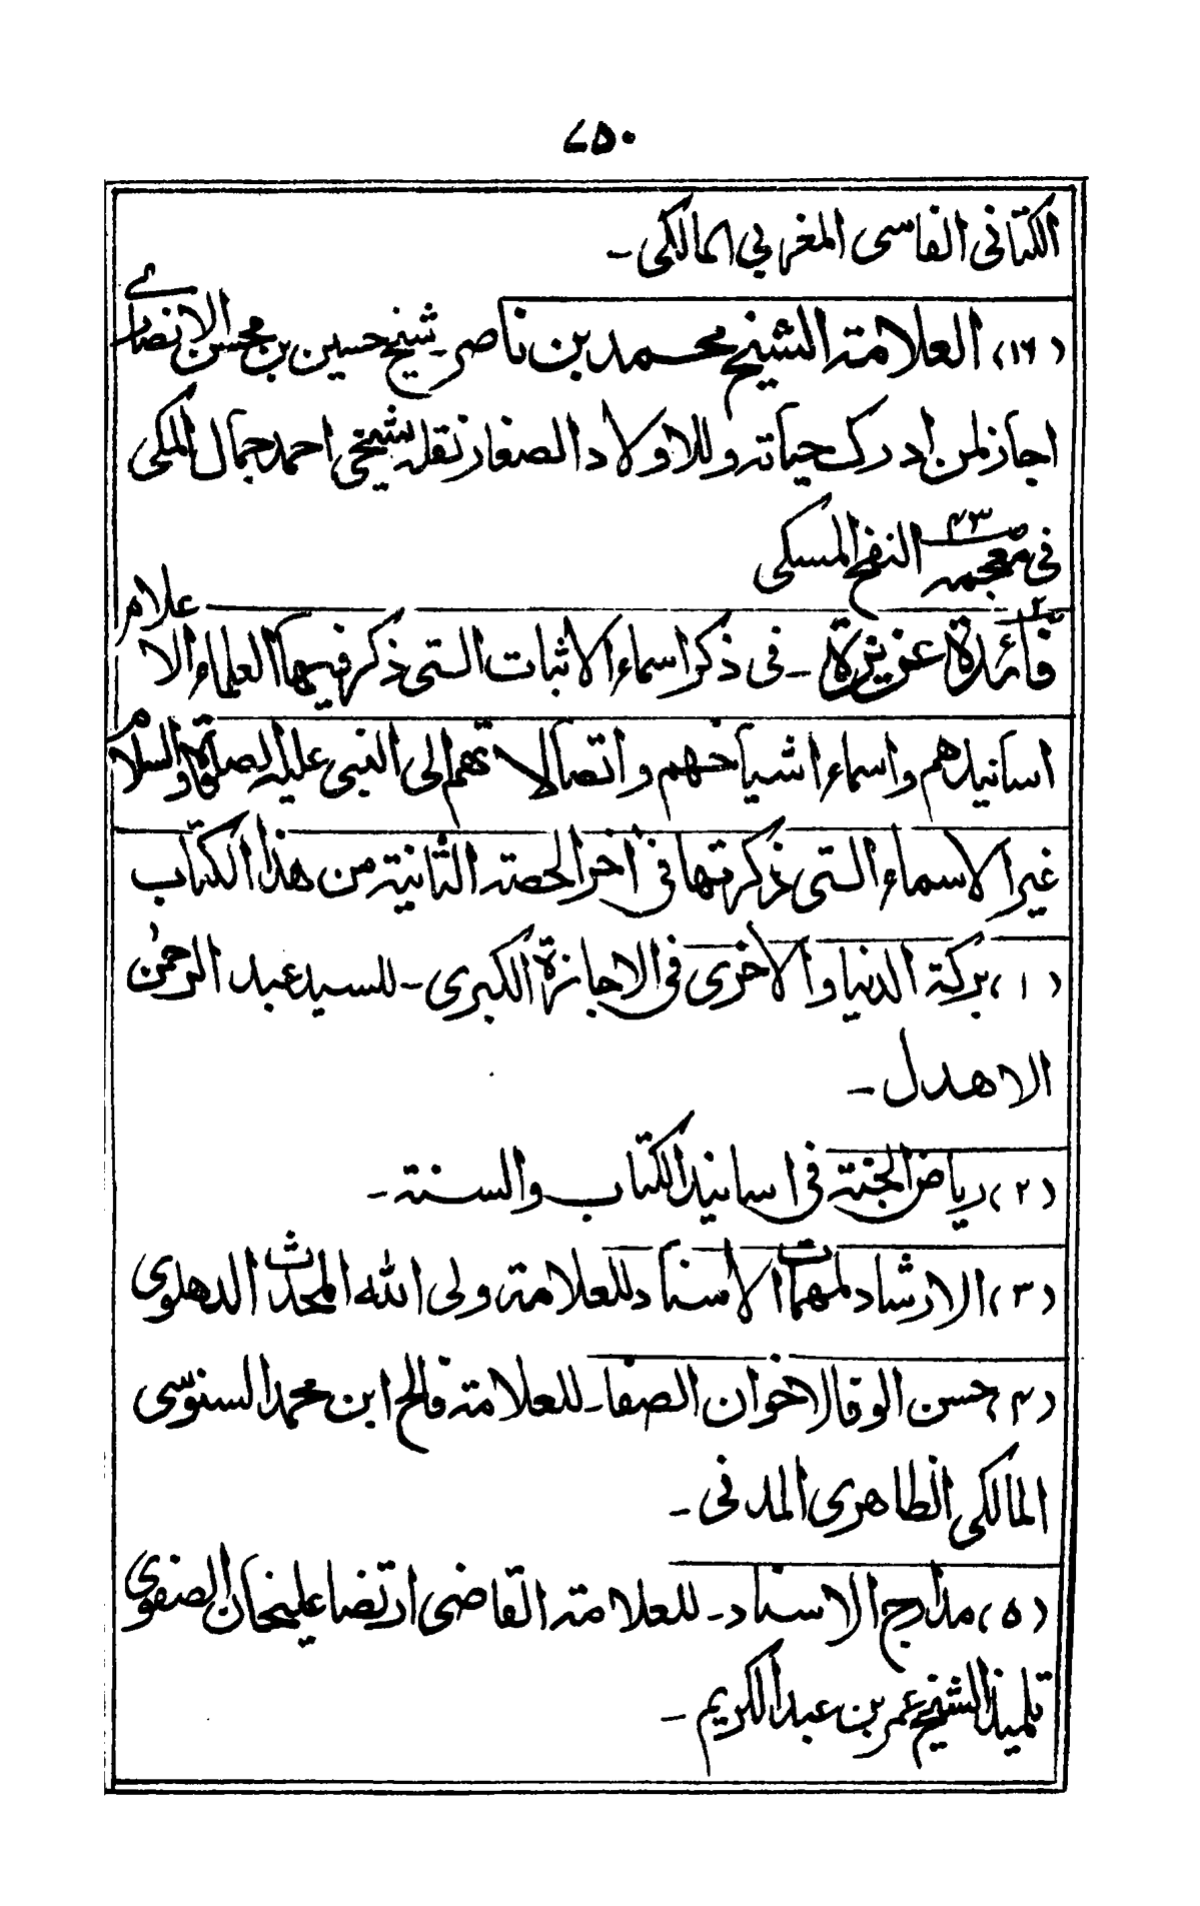 ۷۵۰
الکتانی الفاسی المغربی المالکی ـ
(۱۶) العلامة الشیخ محمد بن ناصر ـ شیخ حسین بن محسن الانصاری
اجاز لمن ادرک حیاته وللاولاد الصغار نقله شیخی احمد جمال المکی
فی معجمه النفح المسکی ص۴۳
فائدة عزیزة ـ فی ذکر اسماء الاثبات التی ذکر فیها العلماء الاعلام
اسانیدهم واسماء اشیاخهم واتصالاتهم الی النبی علیه الصلوة والسلام
غیر الاسماء التی ذکرتها فی اخر الحصة الثانیة من هذا الکتاب
(۱) برکة الدنیا والاخری فی الاجازة الکبری ـ للسید عبد الرحمن
الاهدل ـ
(۲) ریاض الجنة فی اسانید الکتاب والسنة ـ
(۳) الارشاد لمهمات الاسناد للعلامة ولی الله المحدث الدهلوی
(۴) حسن الوفا لاخوان الصفا ـ للعلامة فالح ابن محمد السنوسی
المالکی الظاهری المدنی ـ
(۵) مدارج الاسناد ـ للعلامة القاضی ارتضا علیخان الصفوی
تلمیذ الشیخ عمر بن عبد الکریم ـ